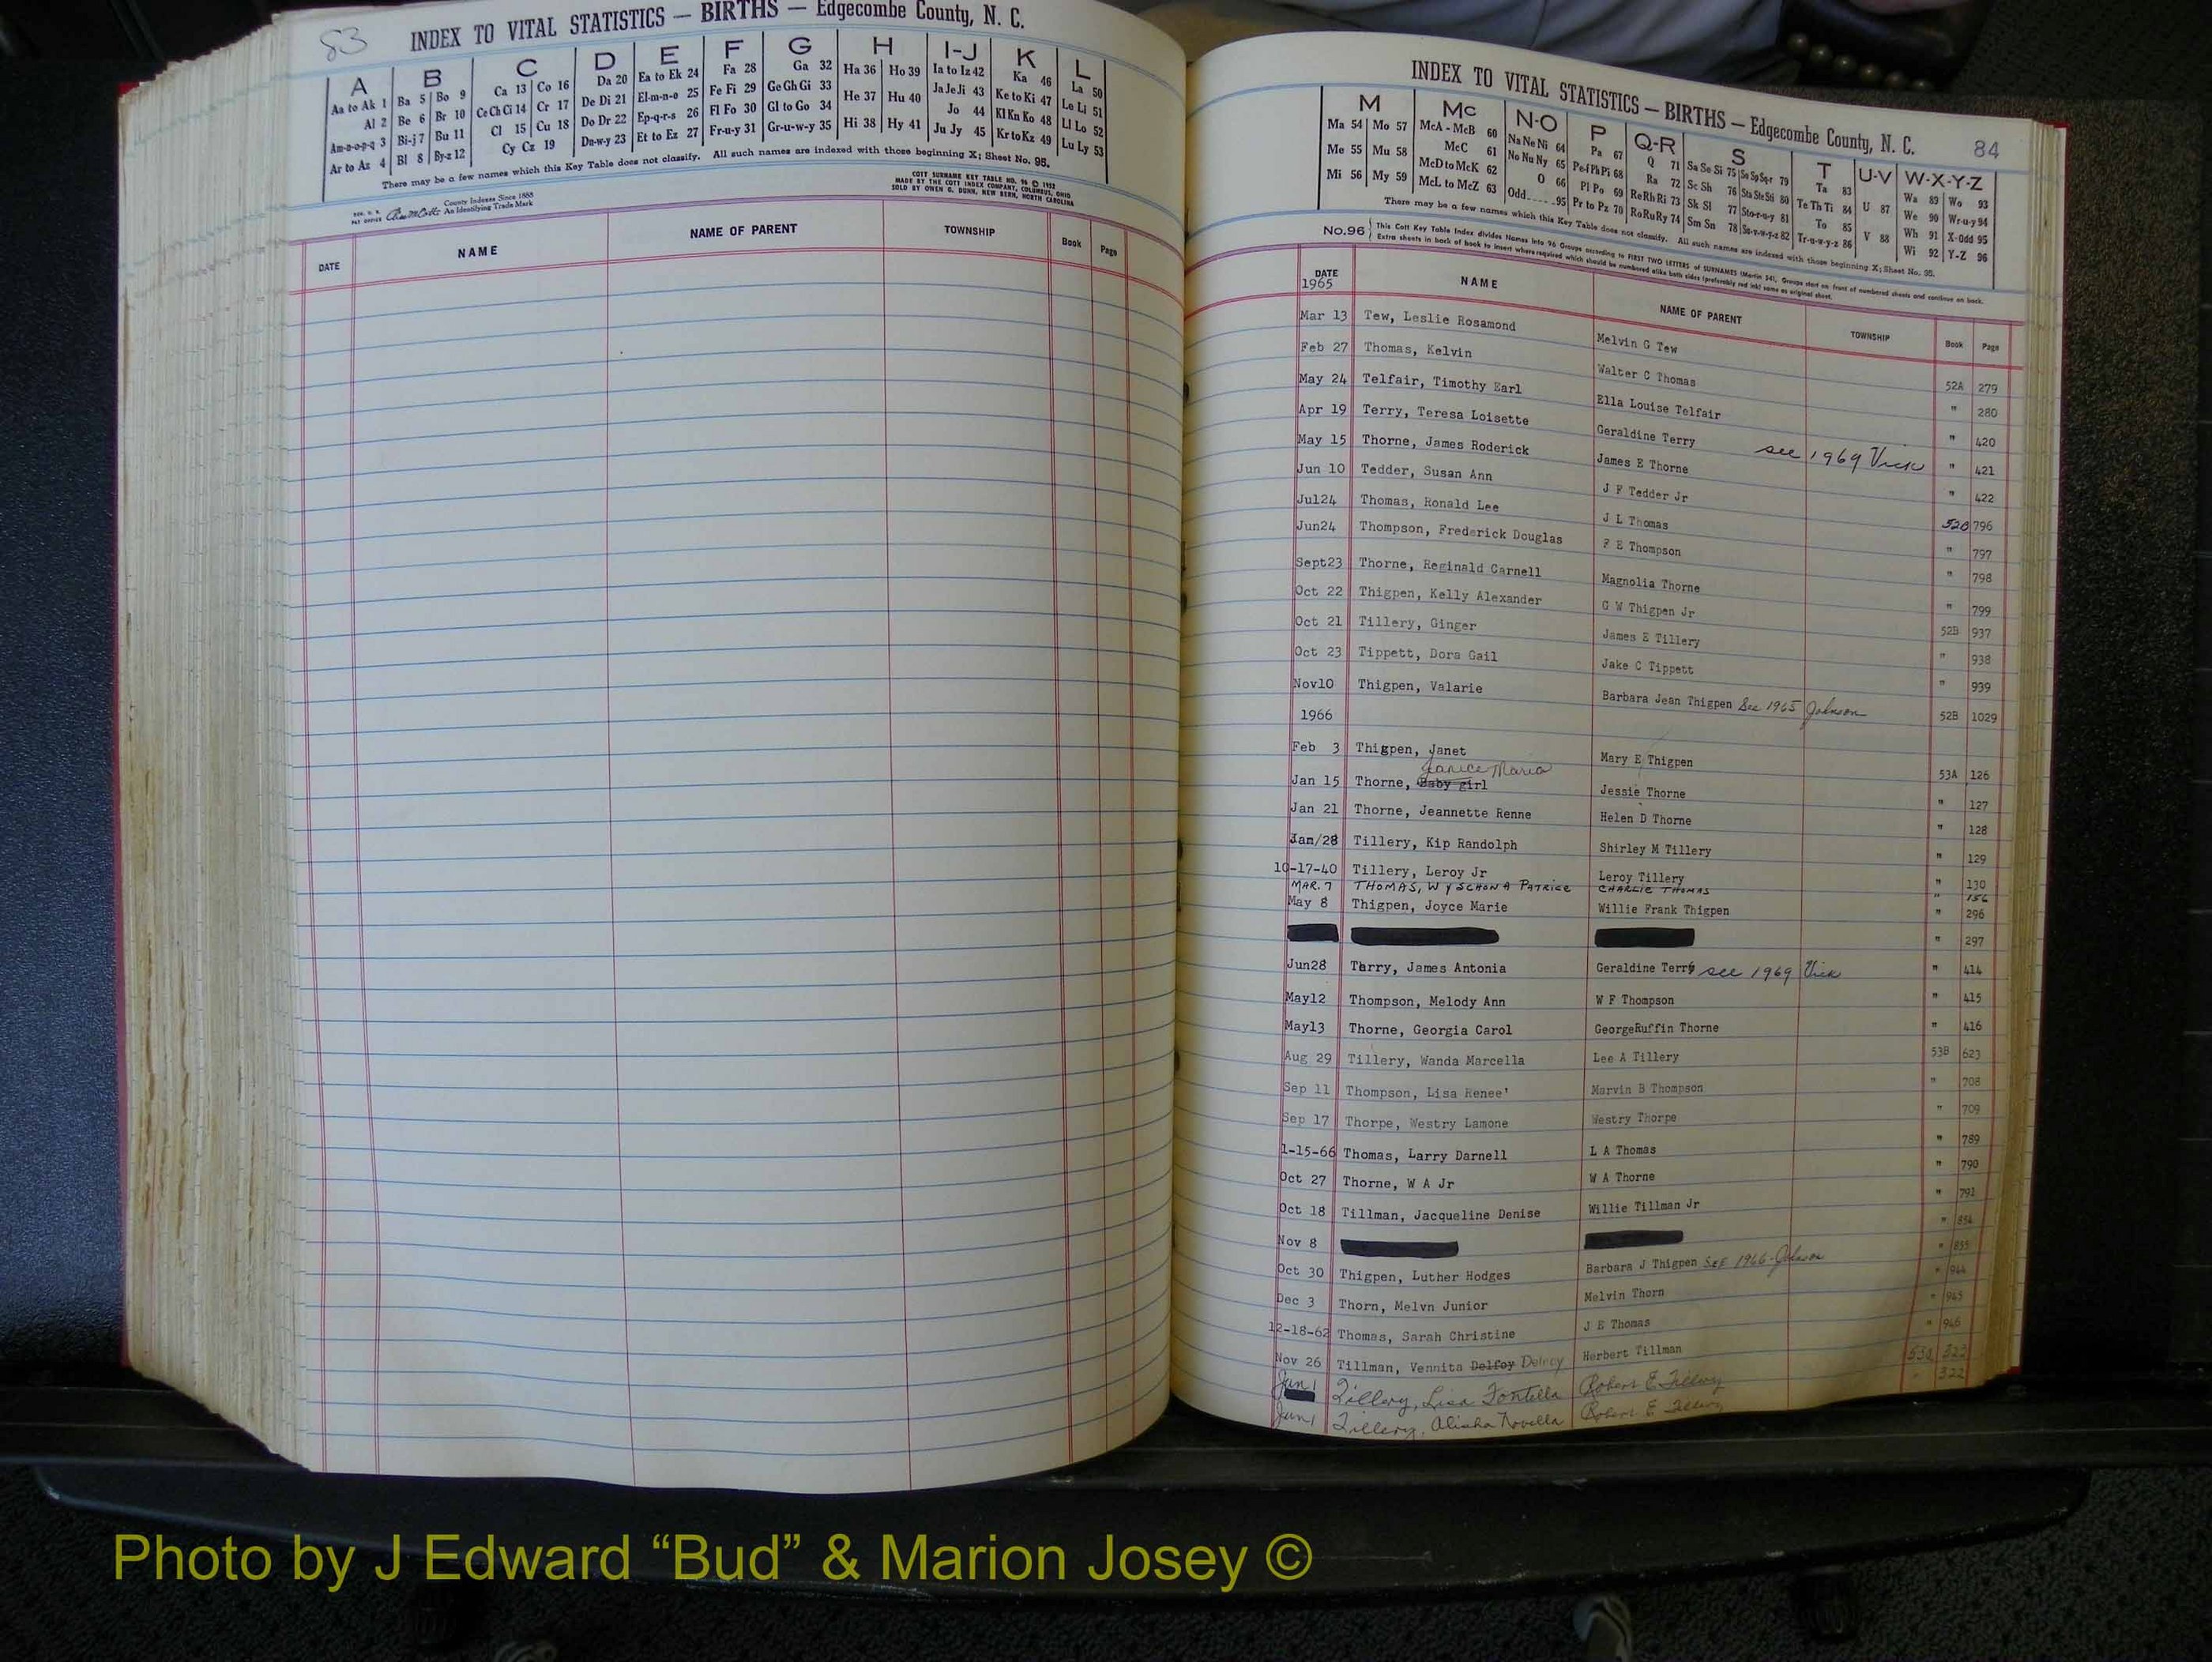 83
INDEX TO VITAL STATISTICS — BIRTHS — Edgecombe County, N. C.
A B C D E F G H I-J K L
Aa to Ak 1 Ba 5 Bo 9 Ca 13 Co 16 Da 20 Ea to Ek 24 Fa 28 Ga 32 Ha 36 Ho 39 Ia to Iz 42 Ka 46 La 50
Al 2 Be 6 Br 10 Ce Ch Ci 14 Cr 17 De Di 21 El-m-n-o 25 Fe Fi 29 Ge Gh Gi 33 He 37 Hu 40 Ja Je Ji 43 Ke to Ki 47 Le Li 51
Am-n-o-p-q 3 Bi-j 7 Bu 11 Cl 15 Cu 18 Do Dr 22 Ep-q-r-s 26 Fl Fo 30 Gl to Go 34 Hi 38 Hy 41 Jo 44 Kl Kn Ko 48 Ll Lo 52
Ar to Az 4 Bl 8 By-z 12 Cy Cz 19 Du-w-y 23 Et to Ez 27 Fr-u-y 31 Gr-u-w-y 35 Ju Jy 45 Kr to Kz 49 Lu Ly 53
There may be a few names which this Key Table does not classify. All such names are indexed with those beginning X; Sheet No. 95.
County Indexes Since 1888
An Identifying Trade Mark
COTT SURNAME KEY TABLE NO. 96 © 1957
MADE BY THE COTT INDEX COMPANY, COLUMBUS, OHIO
SOLD BY OWEN G. DUNN, NEW BERN, NORTH CAROLINA
DATE NAME NAME OF PARENT TOWNSHIP Book Page
INDEX TO VITAL STATISTICS — BIRTHS — Edgecombe County, N. C. 84
M Mc N-O P Q-R S T U-V W-X-Y-Z
Ma 54 Mo 57 McA - McB 60 Na Ne Ni 64 Pa 67 Q 71 Sa Se Si 75 So Sp Sq-r 79 Ta 83 U 87 Wa 89 Wo 93
Me 55 Mu 58 McC 61 No Nu Ny 65 Pe-f Ph Pi 68 Ra 72 Sc Sh 76 Sta Ste Sti 80 Te Th Ti 84 V 88 We 90 Wr-u-y 94
Mi 56 My 59 McD to McK 62 O 66 Pl Po 69 Re Rh Ri 73 Sk Sl 77 Sto-r-u-y 81 To 85 Wh 91 X-Odd 95
McL to McZ 63 Odd 95 Pr to Pz 70 Ro Ru Ry 74 Sm Sn 78 Su-v-w-y-z 82 Tr-u-w-y-z 86 Wi 92 Y-Z 96
There may be a few names which this Key Table does not classify. All such names are indexed with those beginning X; Sheet No. 95.
No.96 This Cott Key Table Index divides Names into 96 Groups according to FIRST TWO LETTERS of SURNAMES (Martin 54). Groups start on front of numbered sheets and continue on back.
Extra sheets in back of book to insert where required which should be numbered alike both sides (preferably red ink) same as original sheet.
DATE NAME NAME OF PARENT TOWNSHIP Book Page
1965
Mar 13 Tew, Leslie Rosamond Melvin G Tew 52A 279
Feb 27 Thomas, Kelvin Walter C Thomas " 280
May 24 Telfair, Timothy Earl Ella Louise Telfair " 420
Apr 19 Terry, Teresa Loisette Geraldine Terry see 1969 Vick " 421
May 15 Thorne, James Roderick James E Thorne " 422
Jun 10 Tedder, Susan Ann J F Tedder Jr 52B 796
Jul24 Thomas, Ronald Lee J L Thomas " 797
Jun24 Thompson, Frederick Douglas F E Thompson " 798
Sept23 Thorne, Reginald Carnell Magnolia Thorne " 799
Oct 22 Thigpen, Kelly Alexander G W Thigpen Jr 52B 937
Oct 21 Tillery, Ginger James E Tillery " 938
Oct 23 Tippett, Dora Gail Jake C Tippett " 939
Nov10 Thigpen, Valarie Barbara Jean Thigpen See 1965 Johnson 52B 1029
1966
Feb 3 Thigpen, Janet Mary E Thigpen 53A 126
Janice Maria
Jan 15 Thorne, Baby girl Jessie Thorne " 127
Jan 21 Thorne, Jeannette Renne Helen D Thorne " 128
Jan/28 Tillery, Kip Randolph Shirley M Tillery " 129
10-17-40 Tillery, Leroy Jr Leroy Tillery " 130
MAR. 7 THOMAS, WYSCHONA PATRICE CHARLIE THOMAS " 156
May 8 Thigpen, Joyce Marie Willie Frank Thigpen " 296
" 297
Jun28 Terry, James Antonia Geraldine Terry see 1969 Vick " 414
May12 Thompson, Melody Ann W F Thompson " 415
May13 Thorne, Georgia Carol GeorgeRuffin Thorne " 416
Aug 29 Tillery, Wanda Marcella Lee A Tillery 53B 623
Sep 11 Thompson, Lisa Renee' Marvin B Thompson " 708
Sep 17 Thorpe, Westry Lamone Westry Thorpe " 709
1-15-66 Thomas, Larry Darnell L A Thomas " 789
Oct 27 Thorne, W A Jr W A Thorne " 790
Oct 18 Tillman, Jacqueline Denise Willie Tillman Jr " 791
Nov 8 " 854
Oct 30 Thigpen, Luther Hodges Barbara J Thigpen SEE 1966-Johnson " 855
Dec 3 Thorn, Melvn Junior Melvin Thorn " 944
12-18-62 Thomas, Sarah Christine J E Thomas " 945
Nov 26 Tillman, Vennita Delfoy Delroy Herbert Tillman " 946
Jun 1 Tillery, Lisa Fontella Robert E Tillery 53A 323
Jun 1 Tillery, Alisha Novella Robert E Tillery " 322
Photo by J Edward “Bud” & Marion Josey ©